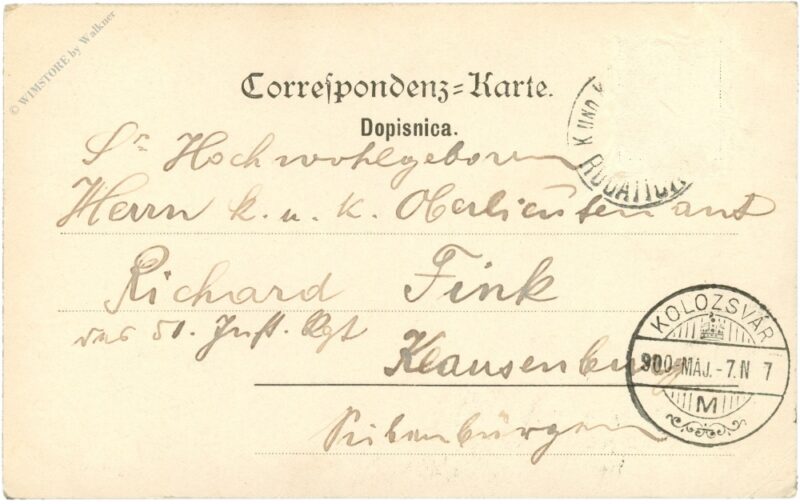 © WIMSTORE by Walkner
Correspondenz-Karte.
Dopisnica.
K UND K
ROGATICA
Sr Hochwohlgeboren
Herrn k. u. k. Oberlieutenant
Richard Fink
des 51. Inft. Rgt
Klausenburg
Siebenbürgen
KOLOZSVÁR
900 MÁJ. -7. N 7
M